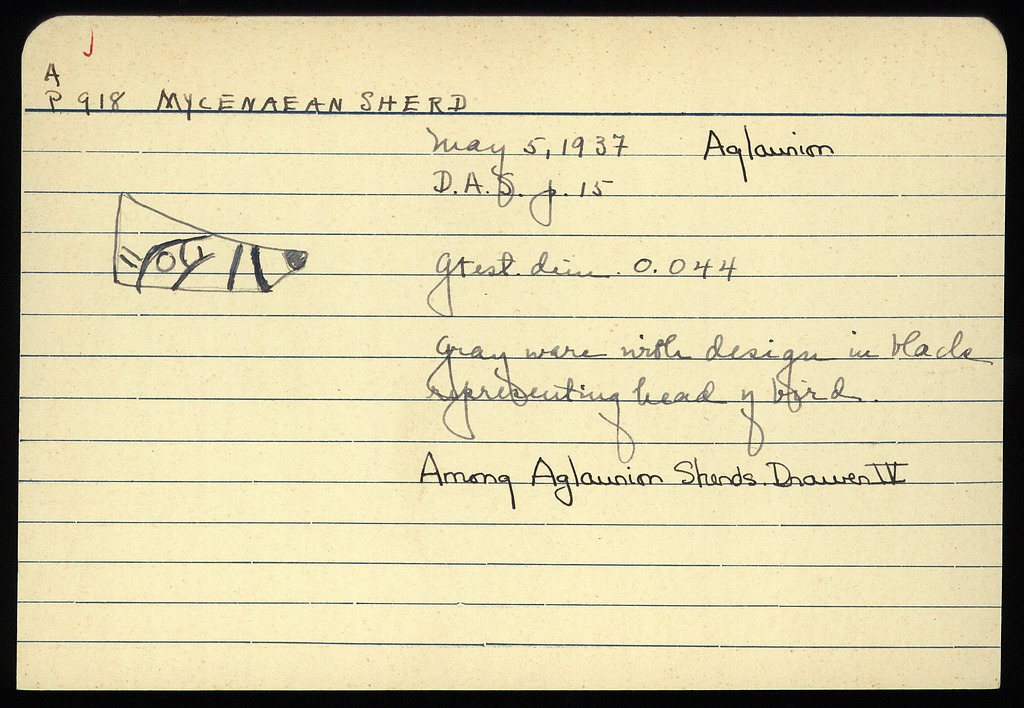 A
P 918 MYCENAEAN SHERD
May 5, 1937 Aglaurion
D.A.S. p. 15
Gtest. dim. 0.044
Gray ware with design in black
representing head of bird.
Among Aglaurion Sherds. Drawer IV